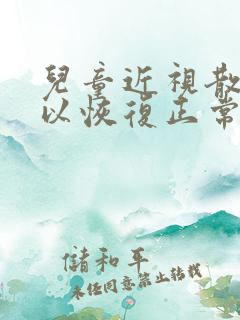 兒童近視散
以恢復正常
儲和平
未经同意禁止转载